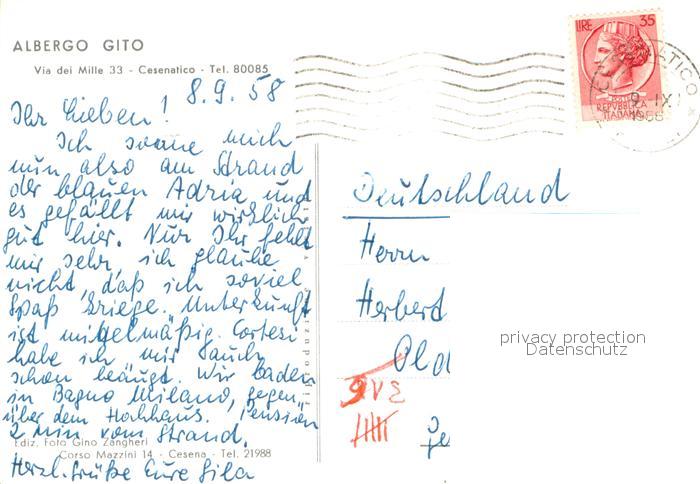 ALBERGO GITO
Via dei Mille 33 - Cesenatico - Tel. 80085
8.9.58
Ihr Lieben!
Ich sonne mich
nun also am Strand
der blauen Adria und
es gefällt mir wirklich
gut hier. Nur Ihr fehlt
mir sehr, ich glaube
nicht, daß ich soviel
Spaß kriege. Unterkunft
ist mittelmäßig. Cortesi
habe ich mir auch
schon beäugt. Wir baden
in Bagno Milano, gegen-
über dem Hochhaus. Pension
2 Min vom Strand.
Ediz. Foto Gino Zangheri
Corso Mazzini 14 - Cesena - Tel. 21988
Herzl. Grüße Eure Gila
LIRE 35
POSTE
REPVBBLICA
ITALIANA
9 IX
1958
Deutschland
Herrn
Herbert
Old
privacy protection
Datenschutz